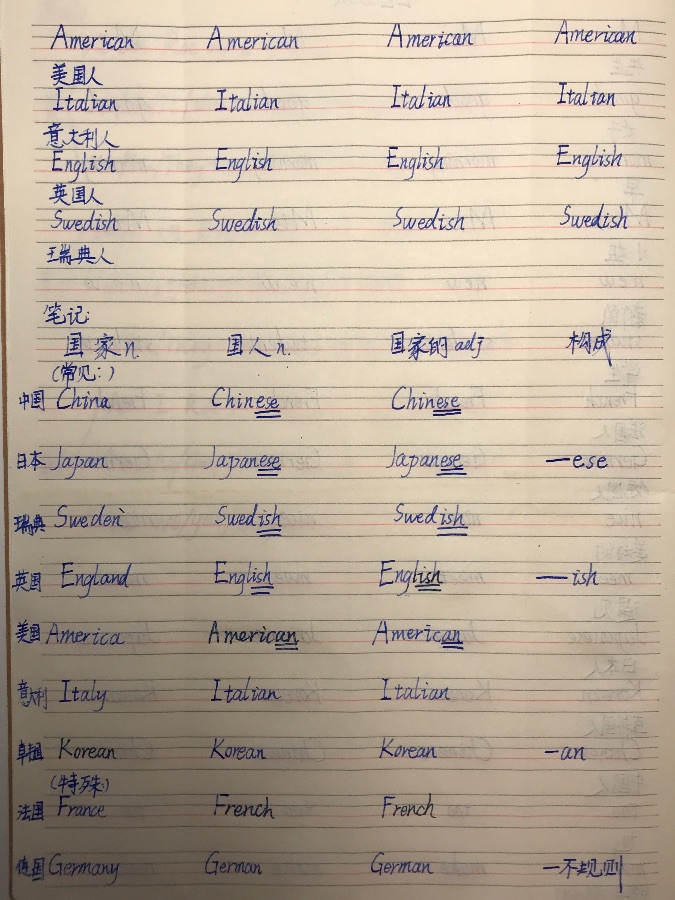 American American American American
美国人
Italian Italian Italian Italian
意大利人
English English English English
英国人
Swedish Swedish Swedish Swedish
瑞典人
笔记:
国家n. 国人n. 国家的adj 构成
(常见:)
中国 China Chinese Chinese
日本 Japan Japanese Japanese —ese
瑞典 Sweden Swedish Swedish
英国 England English English —ish
美国 America American American
意大利 Italy Italian Italian
韩国 Korean Korean Korean —an
(特殊:)
法国 France French French
德国 Germany German German —不规则